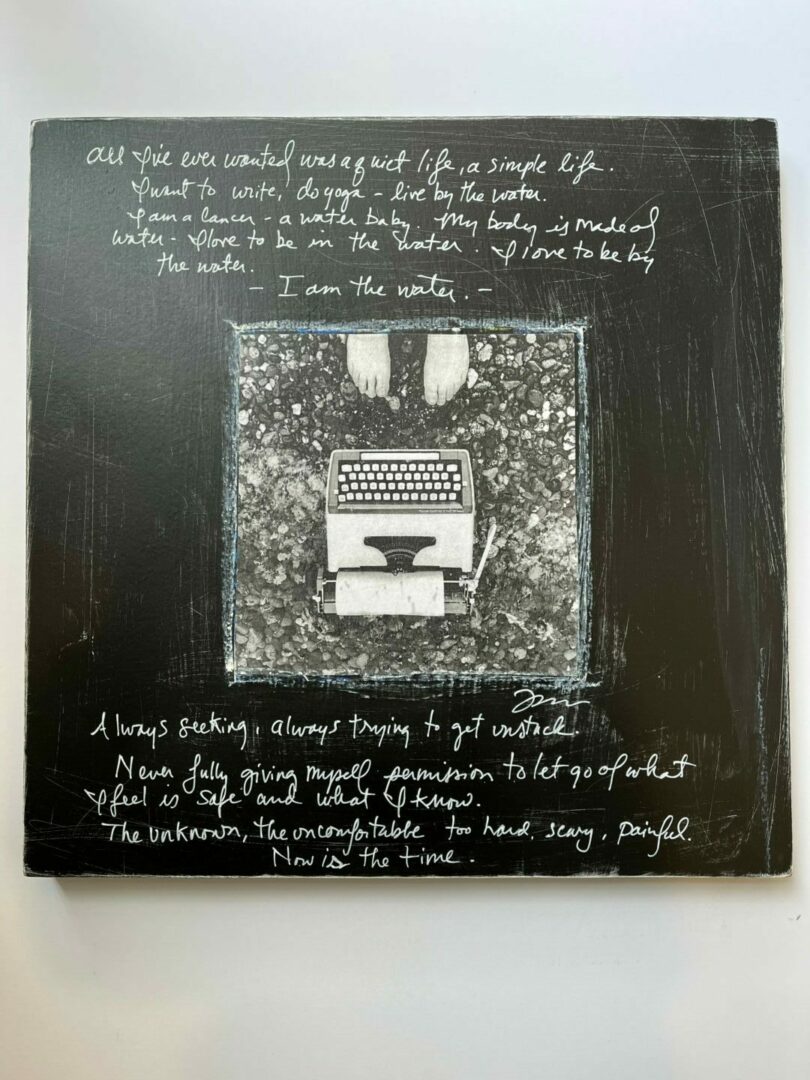 All I've ever wanted was a quiet life, a simple life.
I want to write, do yoga - live by the water.
I am a cancer - a water baby. My body is made of
water - I love to be in the water. I love to be by
the water.
- I am the water. -
Always seeking, always trying to get unstuck.
Never fully giving myself permission to let go of what
I feel is safe and what I know.
The unknown, the uncomfortable too hard, scary, painful.
Now is the time.